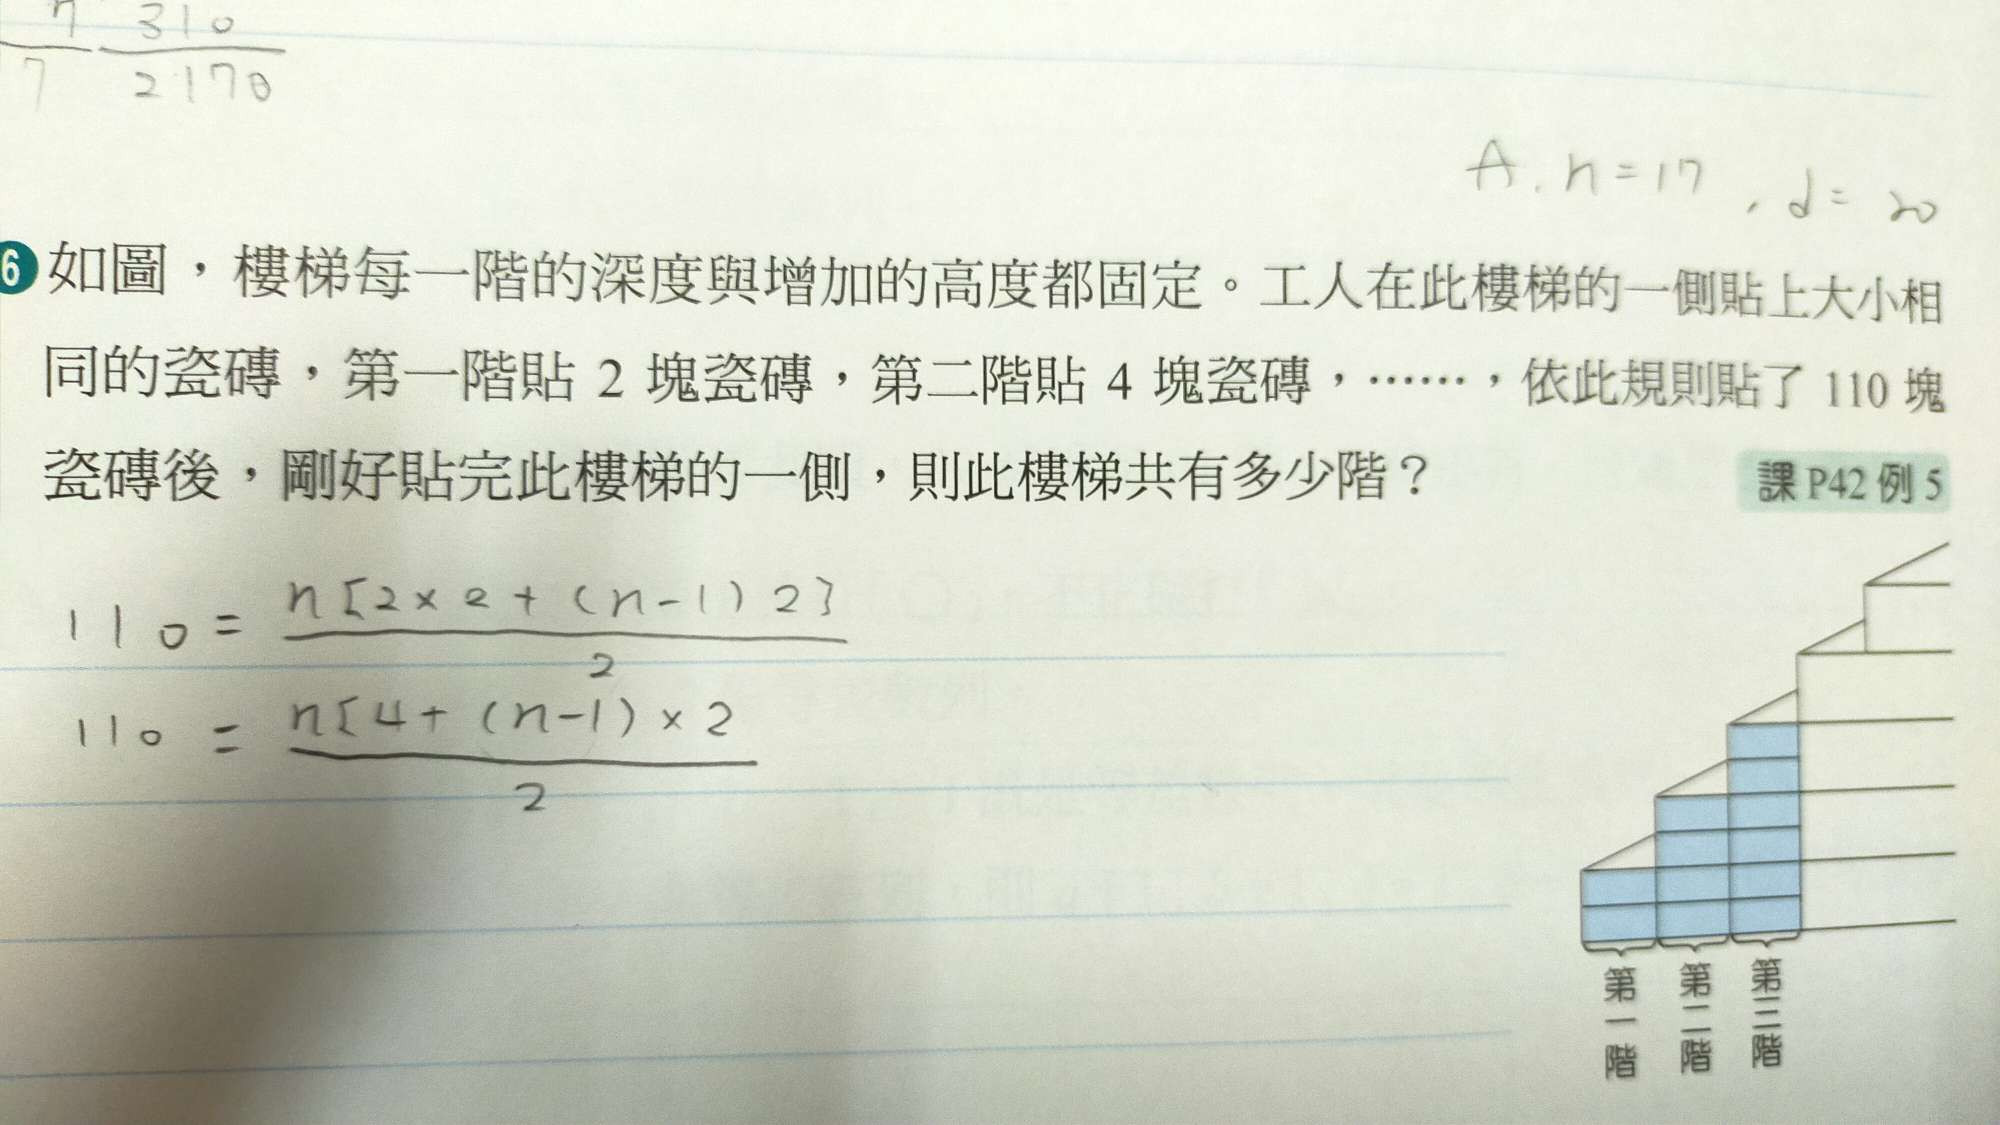 n 310
7 2170
A. n=17 , d= 20
6 如圖，樓梯每一階的深度與增加的高度都固定。工人在此樓梯的一側貼上大小相
同的瓷磚，第一階貼 2 塊瓷磚，第二階貼 4 塊瓷磚，……，依此規則貼了 110 塊
瓷磚後，剛好貼完此樓梯的一側，則此樓梯共有多少階？
課 P42 例 5
110 = n[2×2+(n-1)2]
2
110 = n[4+(n-1)×2
2
第一階
第二階
第三階